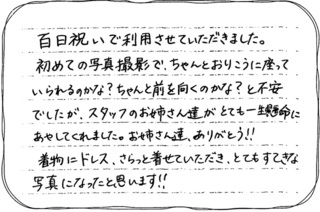 百日祝いで利用させていただきました。
初めての写真撮影で、ちゃんとおりこうに座って
いられるのかな？ちゃんと前を向くのかな？と不安
でしたが、スタッフのお姉さん達がとても一生懸命に
あやしてくれました。お姉さん達、ありがとう!!
着物にドレス、さらっと着せていただき、とてもすてきな
写真になったと思います!!